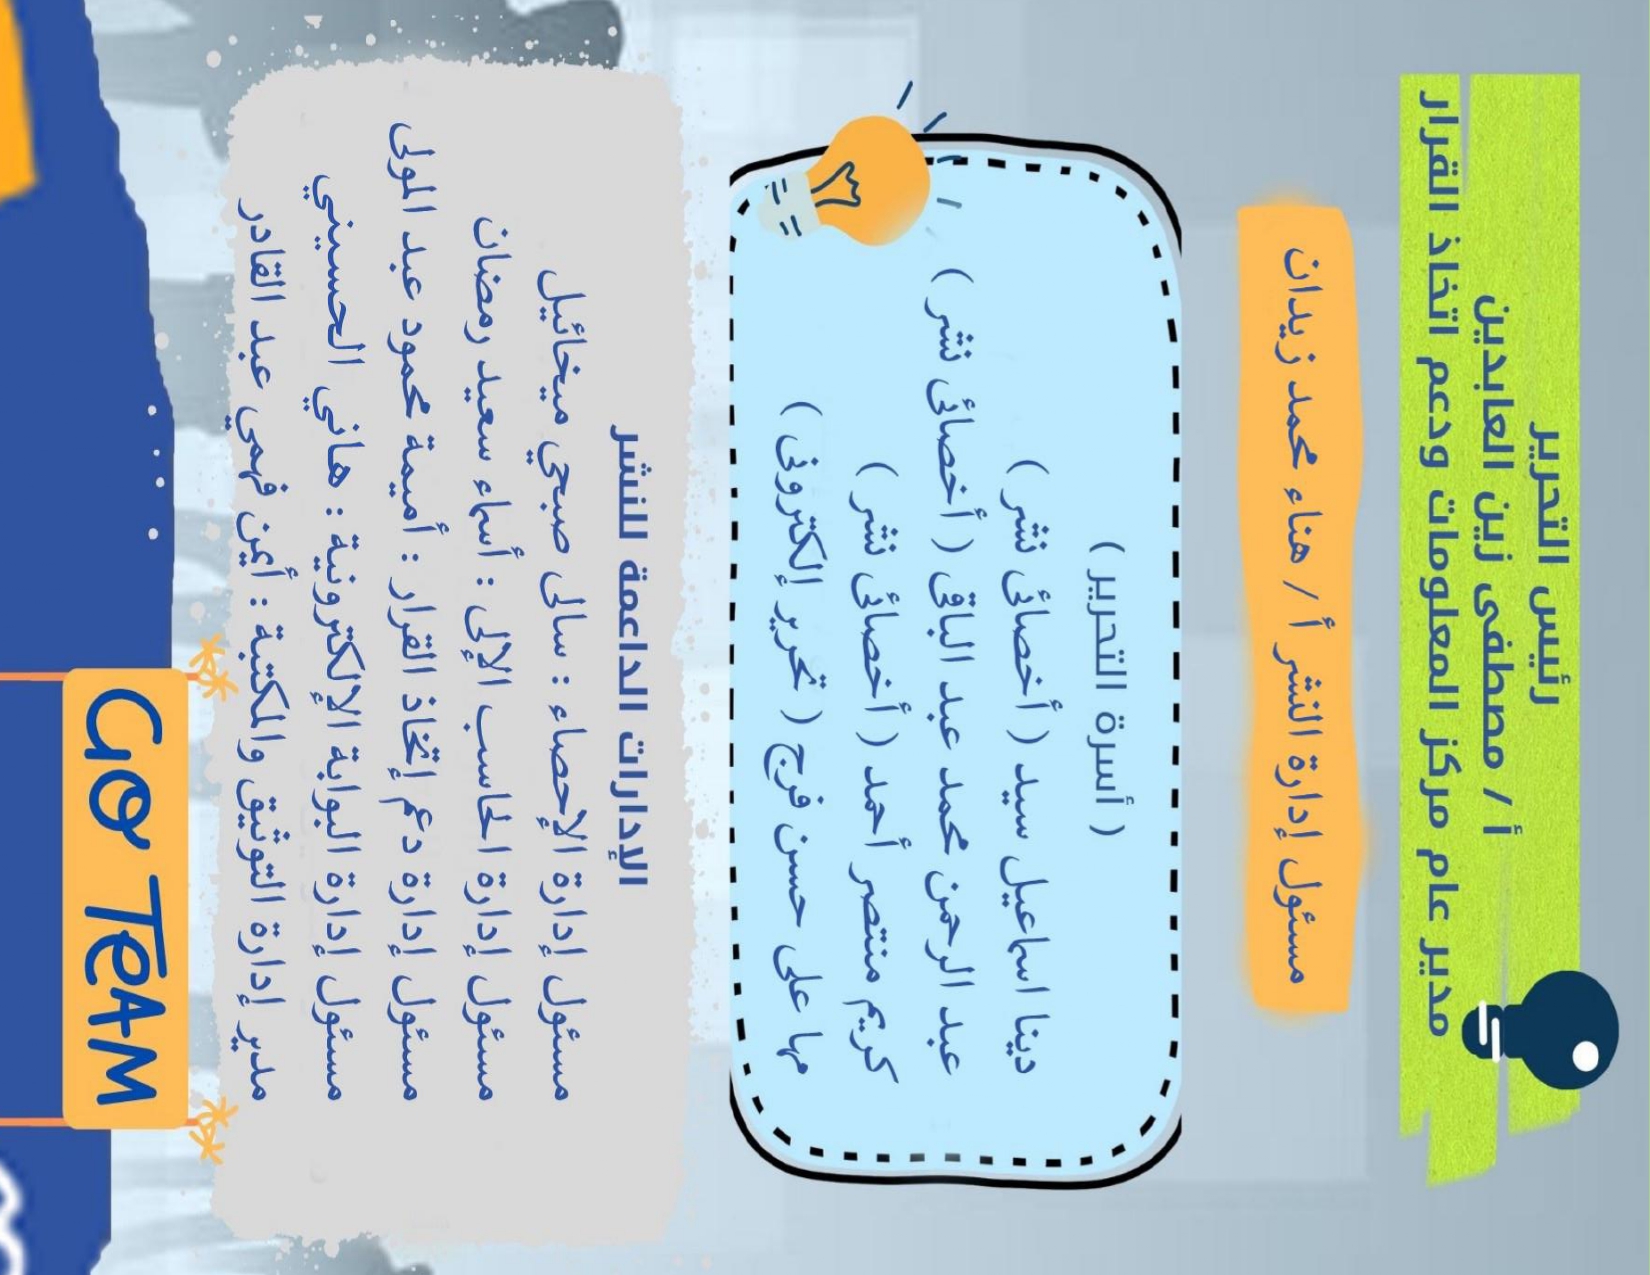 رئيس التحرير
أ / مصطفى زين العابدين
مدير عام مركز المعلومات ودعم اتخاذ القرار
مسئول إدارة النشر أ / هناء محمد زيدان
( أسرة التحرير )
دينا اسماعيل سيد ( أخصائى نشر )
عبد الرحمن محمد عبد الباقى ( أخصائى نشر )
كريم منتصر أحمد ( أخصائى نشر )
مها على حسن فرج ( تحرير إلكترونى )
الإدارات الداعمة للنشر
مسئول إدارة الإحصاء : سالى صبحي ميخائيل
مسئول إدارة الحاسب الإلى : أسماء سعيد رمضان
مسئول إدارة دعم إتخاذ القرار : أميمة محمود عبد المولى
مسئول إدارة البوابة الإلكترونية : هاني الحسيني
مدير إدارة التوثيق والمكتبة : أيمن فهمي عبد القادر
GO TEAM